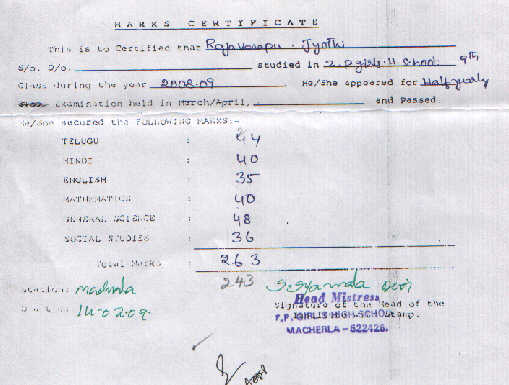 MARKS CERTIFICATE
This is to Certified that Rajavarapu . Jyothi
S/o. D/o. studied in Z.P girls. H School 9th
Class during the year 2008-09 He/She appeared for Half yearly
examination held in March/April, and Passed
He/She secured the FOLLOWING MARKS:-
TELUGU : 64
HINDI : 40
ENGLISH : 35
MATHEMATICS : 40
GENERAL SCIENCE : 48
SOCIAL STUDIES : 36
Total MARKS 263
243
Station: Macherla
Date: 14.02.09.
Signature of the Head of the
Stamp.
Head Mistress
GIRLS HIGH SCHOOL
MACHERLA - 522426.